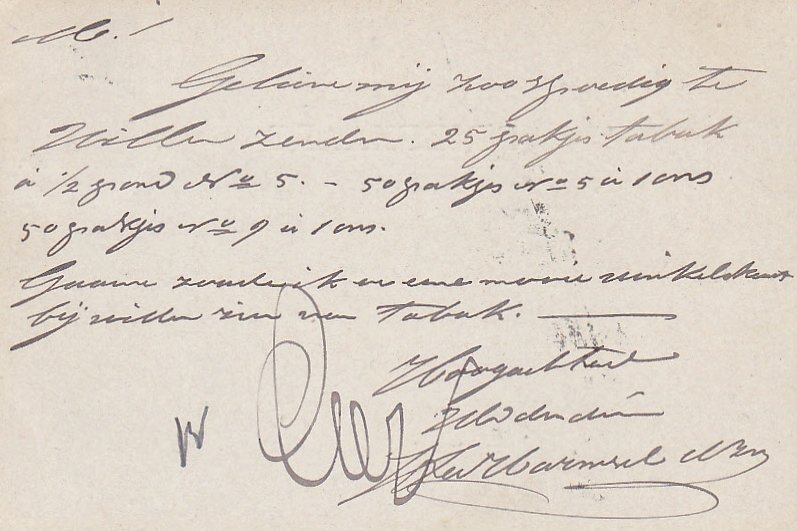 M!
Gelieve mij zoo spoedig te
Willen zenden. 25 pakjes tabak
à 1/2 pond No 5. – 50 pakjes No 5 à 1 ons
50 pakjes No 9 à 1 ons.
Gaarne zoude ik er eene mooie winkelskaart
bij willen zien van Tabak. —
Hoogachtend
UwDw dn